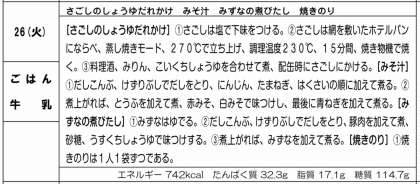 さごしのしょうゆだれかけ　みそ汁　みずなの煮びたし　焼きのり
26(火)
ごはん
牛乳
[さごしのしょうゆだれかけ] ①さごしは塩で下味をつける。②さごしは網を敷いたホテルパン
にならべ、蒸し焼きモード、270℃で立ち上げ、調理温度230℃、15分間、焼き物機で焼
く。③料理酒、みりん、こいくちしょうゆを合わせて煮、配缶時にさごしにかける。[みそ汁]
①だしこんぶ、けずりぶしでだしをとり、にんじん、たまねぎ、はくさいの順に加えて煮る。②
煮上がれば、とうふを加えて煮、赤みそ、白みそで味つけし、最後に青ねぎを加えて煮る。[み
ずなの煮びたし] ①みずなはゆでる。②だしこんぶ、けずりぶしでだしをとり、豚肉を加えて煮、
砂糖、うすくちしょうゆで味つけする。③煮上がれば、みずなを加えて煮る。[焼きのり] ①焼
きのりは1人1袋ずつである。
エネルギー 742kcal　たんぱく質 32.3g　脂質 17.1g　糖質 114.7g